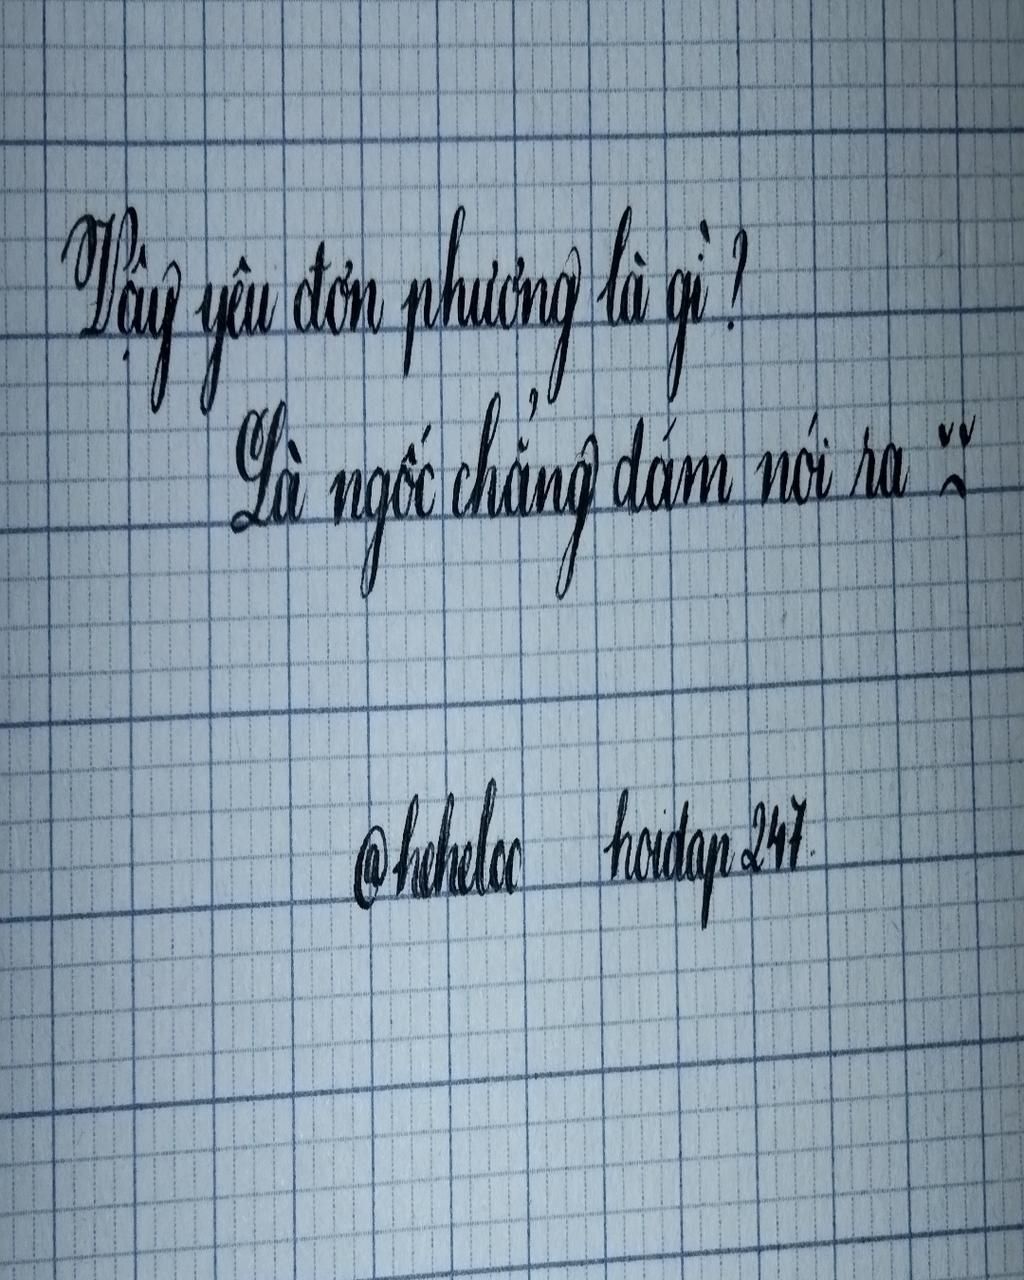 Vậy yêu đơn phương là gì?
Là ngốc chẳng dám nói ra
@hehelcc hoidap247.